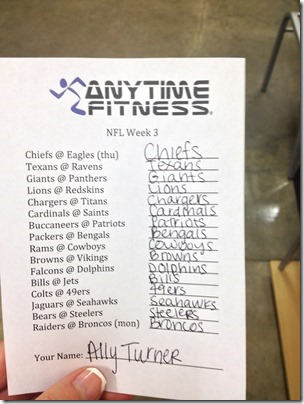 ANYTIME
FITNESS®
NFL Week 3
Chiefs @ Eagles (thu) Chiefs
Texans @ Ravens Texans
Giants @ Panthers Giants
Lions @ Redskins Lions
Chargers @ Titans Chargers
Cardinals @ Saints Cardinals
Buccaneers @ Patriots Patriots
Packers @ Bengals Bengals
Rams @ Cowboys Cowboys
Browns @ Vikings Browns
Falcons @ Dolphins Dolphins
Bills @ Jets Bills
Colts @ 49ers 49ers
Jaguars @ Seahawks Seahawks
Bears @ Steelers Steelers
Raiders @ Broncos (mon) Broncos
Your Name: Ally Turner